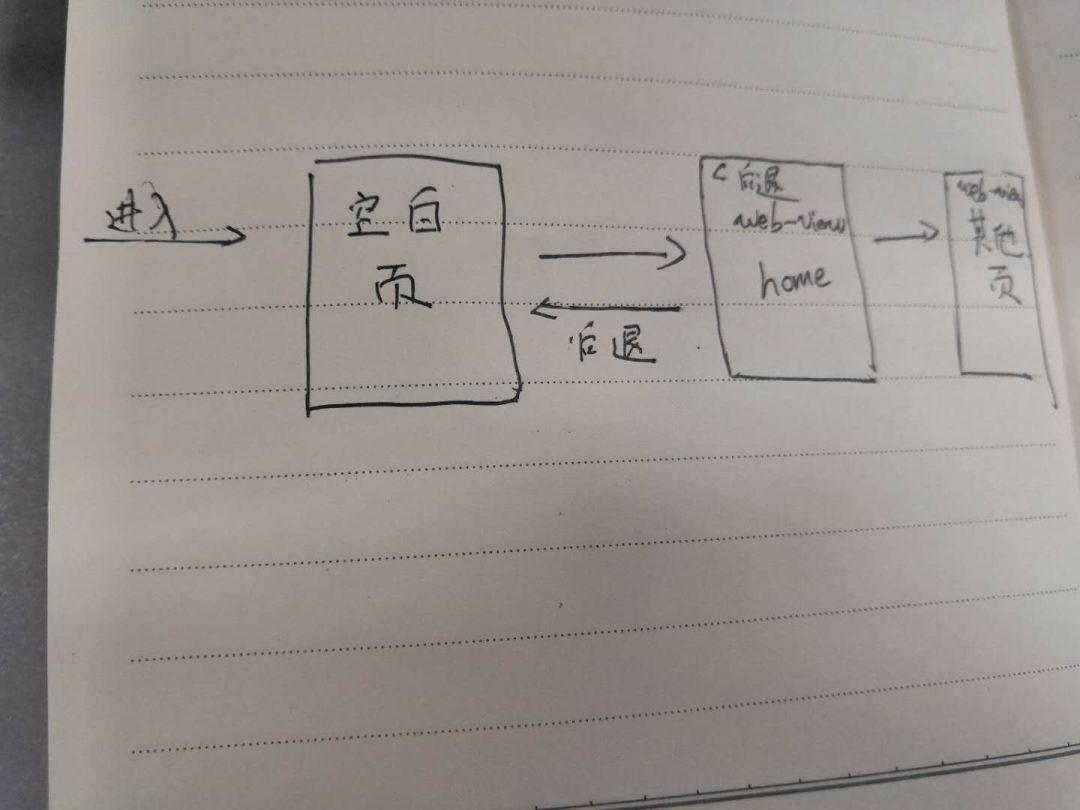 进入
空白
页
后退
< 后退
web-view
home
web-view
其他
页